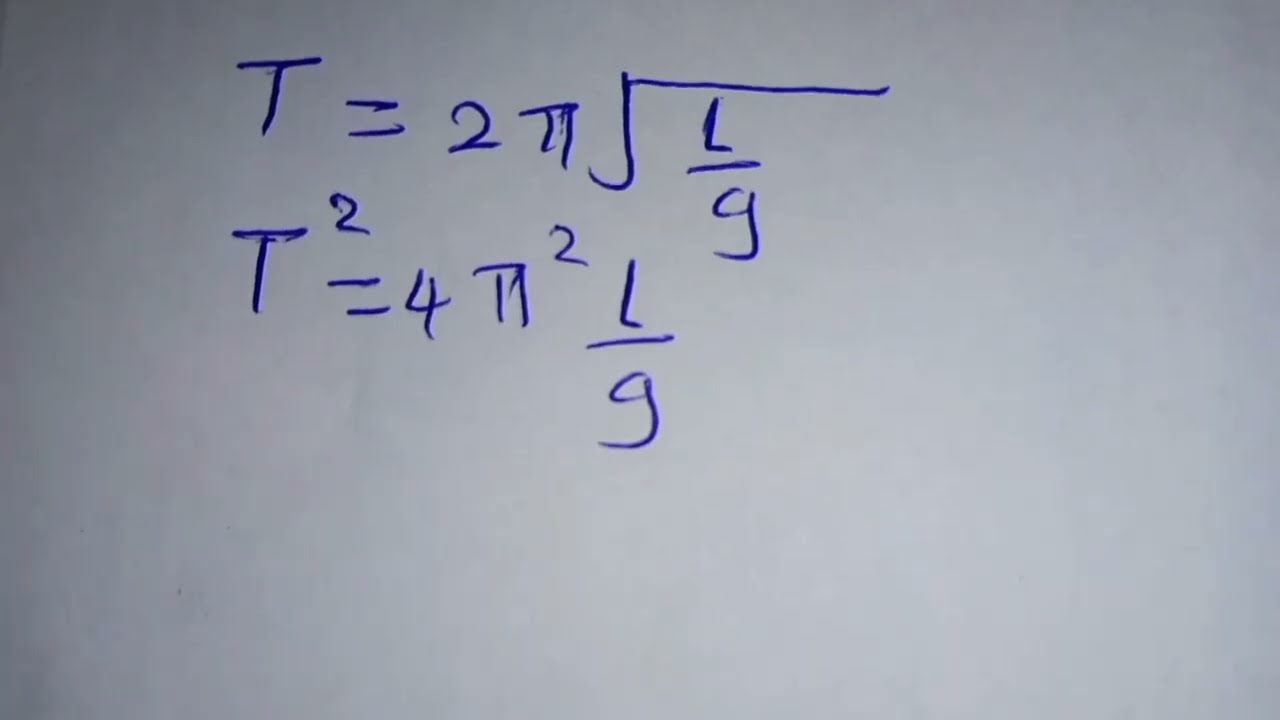 T = 2π√(l/g)
T² = 4π² l/g